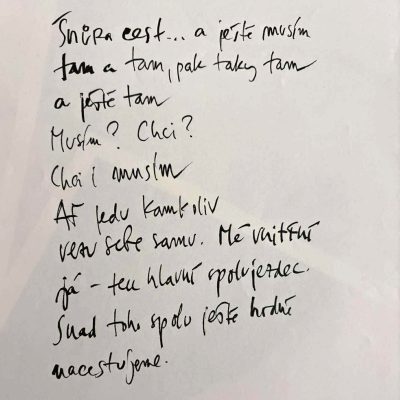 Šňůra cest... a ještě musím
tam a tam, pak taky tam
a ještě tam
Musím? Chci?
Chci i musím
Ať jedu kamkoliv
vezu sebe samu. Mé vnitřní
já - ten hlavní spolujezdec.
Snad toho spolu ještě hodně
nacestujeme.